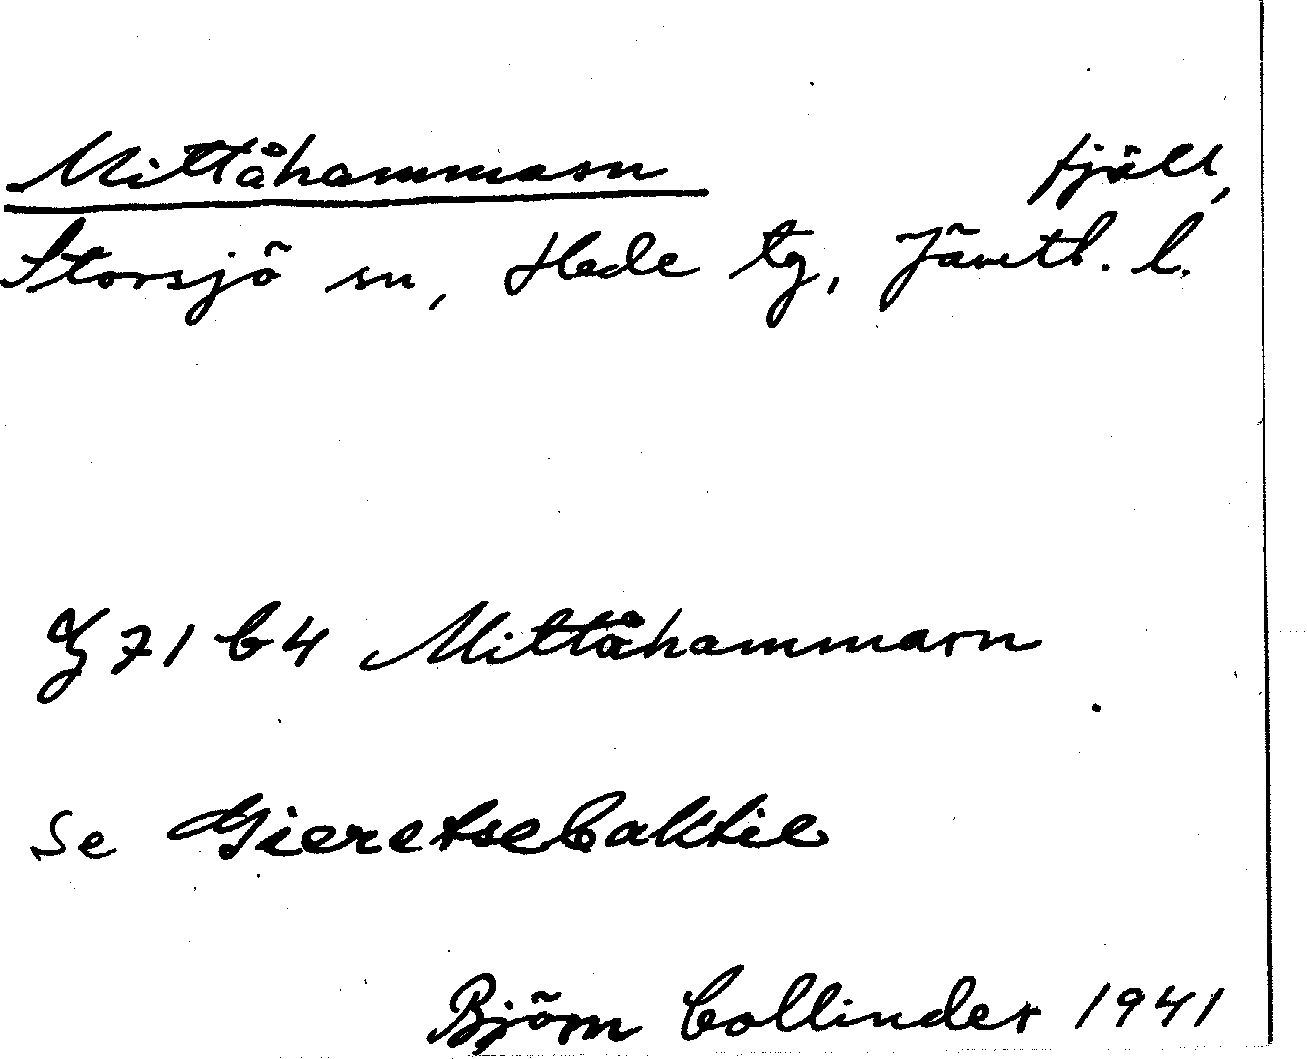 Mittåhammarn fjäll,
Storsjö sn, Hede tg, Jämtl. l.
Z 71 b 4 Mittåhammarn
Se Gieretsebaktie
Björn Collinder 1941